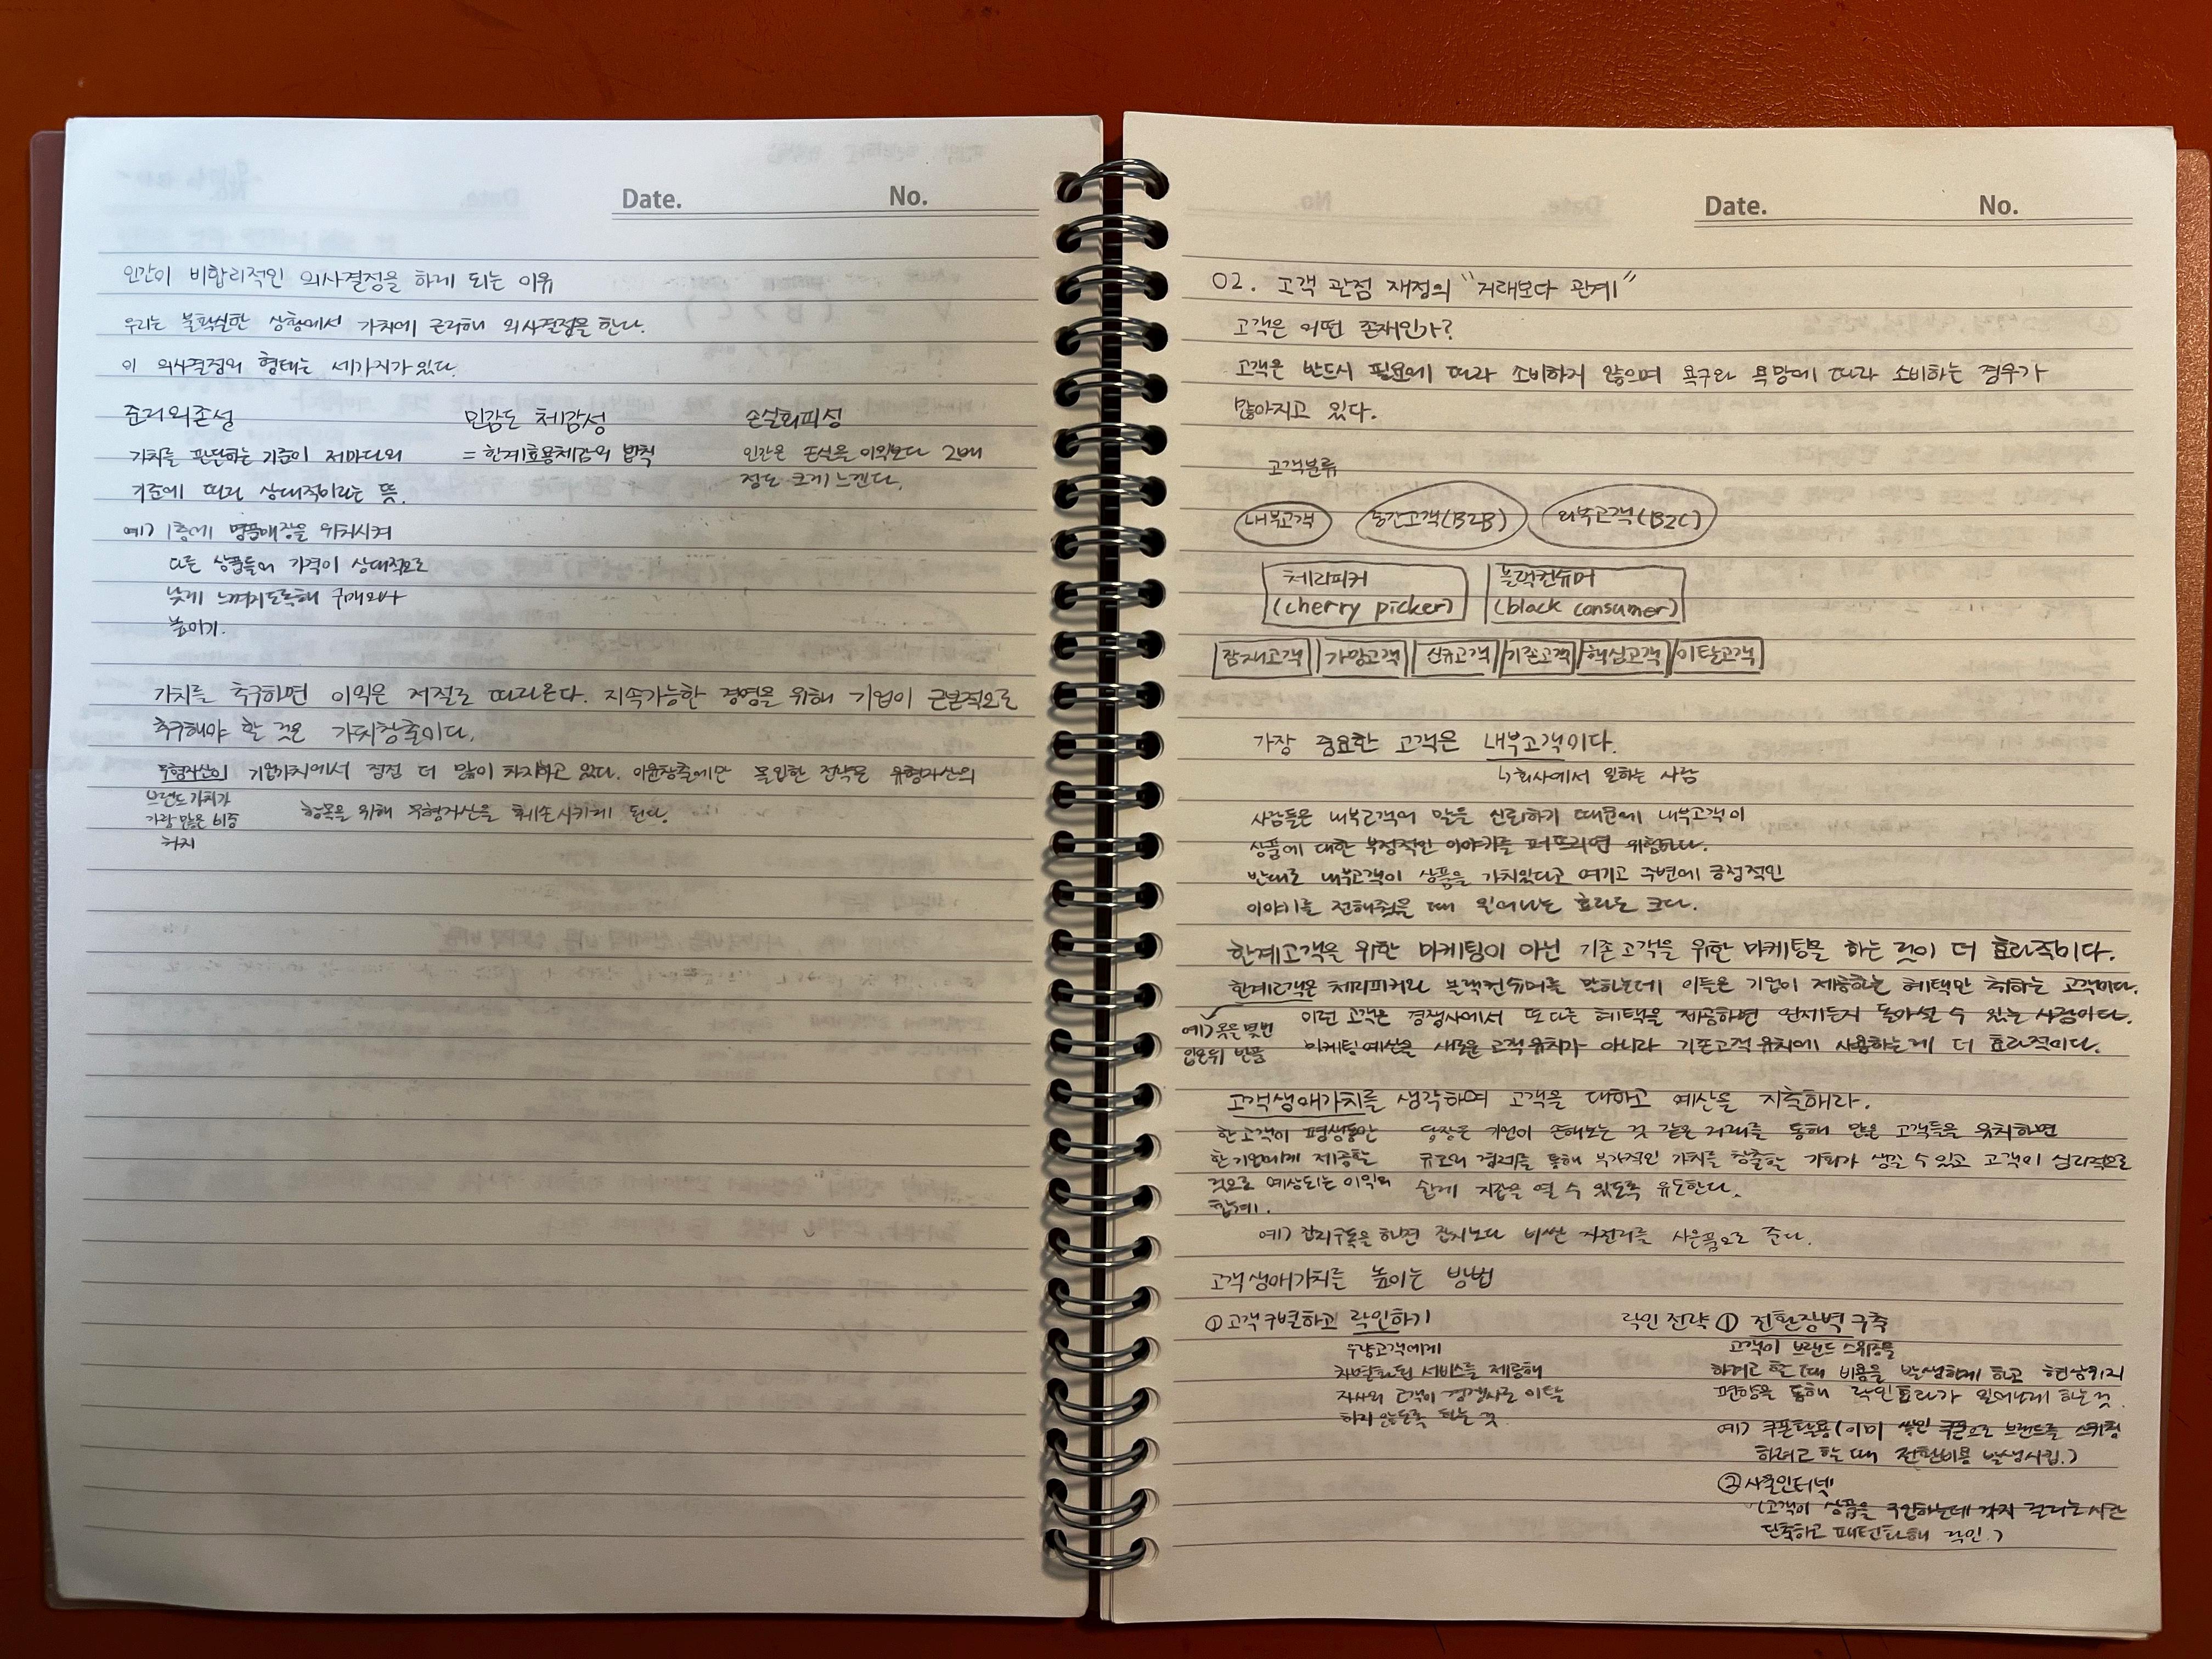 Date. No.
인간이 비합리적인 의사결정을 하게 되는 이유
우리는 불확실한 상황에서 가치에 근거해 의사결정을 한다.
이 의사결정의 형태는 세가지가 있다.
준거의존성
가치를 판단하는 기준이 저마다의
기준에 따라 상대적이라는 뜻.
예) 1층에 명품매장을 위치시켜
다른 상품들의 가격이 상대적으로
낮게 느껴지도록해 구매의사
높이기.
민감도 체감성
= 한계효용체감의 법칙
손실회피성
인간은 손실을 이익보다 2배
정도 크게 느낀다.
가치를 추구하면 이익은 저절로 따라온다. 지속가능한 경영을 위해 기업이 근본적으로
추구해야 할 것은 가치창출이다.
무형자산이 기업가치에서 점점 더 많이 차지하고 있다. 이윤창출에만 몰입한 전략은 유형자산의
항목을 위해 무형자산을 훼손시키게 된다.
브랜드가치가
가장 많은 비중
차지
Date. No.
02. 고객 관점 재정의 "거래보다 관계"
고객은 어떤 존재인가?
고객은 반드시 필요에 따라 소비하지 않으며 욕구와 욕망에 따라 소비하는 경우가
많아지고 있다.
고객분류
내부고객 중간고객(B2B) 외부고객(B2C)
체리피커 블랙컨슈머
(cherry picker) (black consumer)
잠재고객 가망고객 신규고객 기존고객 핵심고객 이탈고객
가장 중요한 고객은 내부고객이다.
↳회사에서 일하는 사람
사람들은 내부고객의 말을 신뢰하기 때문에 내부고객이
상품에 대한 부정적인 이야기를 퍼뜨리면 위험하다.
반대로 내부고객이 상품을 가치있다고 여기고 주변에 긍정적인
이야기를 전해줬을 때 일어나는 효과도 크다.
한계고객을 위한 마케팅이 아닌 기존고객을 위한 마케팅을 하는 것이 더 효과적이다.
한계고객은 체리피커와 블랙컨슈머를 말하는데 이들은 기업이 제공하는 혜택만 취하는 고객이다.
예) 옷을 몇번
입은뒤 반품
이런 고객은 경쟁사에서 또 다른 혜택을 제공하면 언제든지 돌아설 수 있는 사람이다.
마케팅예산을 새로운 고객유치가 아니라 기존고객유치에 사용하는게 더 효과적이다.
고객생애가치를 생각하며 고객을 대하고 예산을 지출해라.
한 고객이 평생동안
한 기업에게 제공할
것으로 예상되는 이익의
합계.
당장은 기업이 손해보는 것 같은 거래를 통해 많은 고객들을 유치하면
규모의 경제를 통해 부가적인 가치를 창출할 기회가 생길 수 있고 고객이 심리적으로
쉽게 지갑을 열 수 있도록 유도한다.
예) 잡지구독을 하면 잡지보다 비싼 자전거를 사은품으로 준다.
고객생애가치를 높이는 방법
① 고객 구별하고 락인하기
우량고객에게
차별화된 서비스를 제공해
자사의 고객이 경쟁사로 이탈
하지 않도록 하는 것.
락인 전략 ① 전환장벽 구축
고객이 브랜드 스위칭을
하려고 할 때 비용을 발생하게 하고 현상유지
편향을 통해 락인효과가 일어나게 하는것.
예) 쿠폰활용(이미 쌓인 쿠폰으로 브랜드를 스위칭
하려고 할 때 전환비용 발생시킴.)
② 사물인터넷
(고객이 상품을 구입하는데 까지 걸리는 시간
단축하고 패턴화해 락인.)